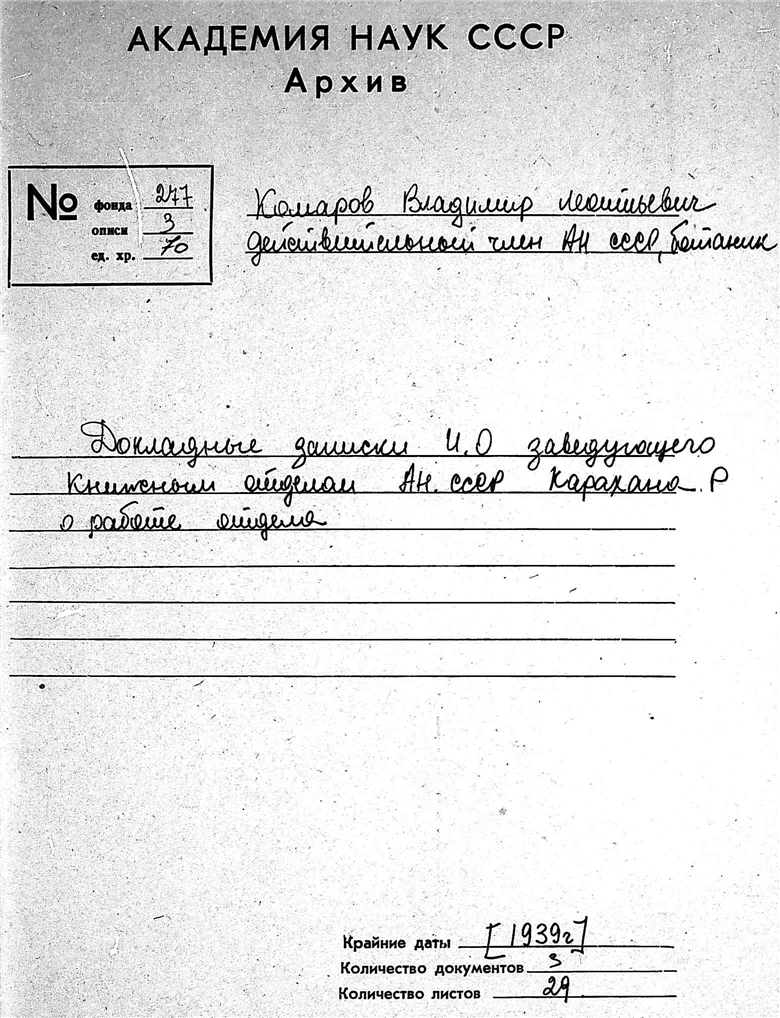 АКАДЕМИЯ НАУК СССР
Архив
№ фонда 277
описи 3
ед. хр. 70
Комаров Владимир Леонтьевич
действительный член АН СССР, ботаник
Докладные записки И.О заведующего
Книжным отделом АН. СССР Карахана. Р
о работе отдела
Крайние даты [1939г]
Количество документов 3
Количество листов 29